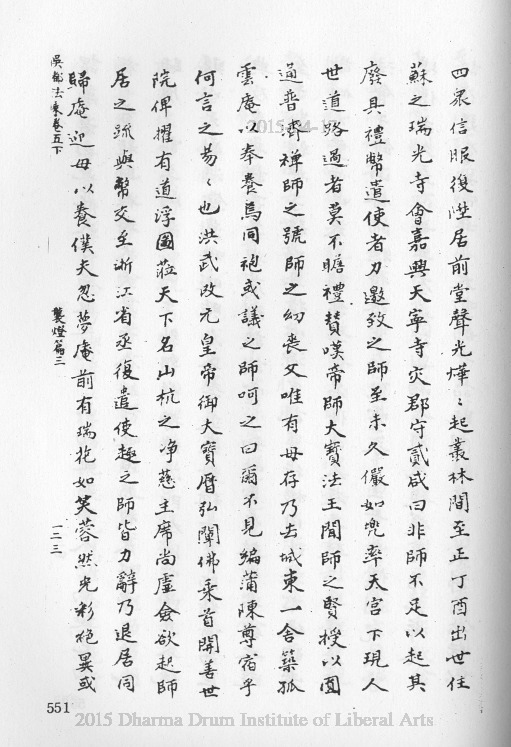 四眾信服後陞居前堂聲光燁〻起叢林間至正丁酉出世住
蘇之瑞光寺會嘉興天寧寺灾郡守貳咸曰非師不足以起其
廢具禮幣遣使者力邀致之師至未久儼如兜率天宮下現人
世道路過者莫不瞻禮贊嘆帝師大寶法王聞師之賢授以圓
通普濟禪師之號師之幼喪父唯有母存乃去城東一舍築孤
雲庵以奉養焉同袍或議之師呵之曰爾不見編蒲陳尊宿乎
何言之易〻也洪武改元皇帝御大寶曆弘闡佛乘首開善世
院俾擢有道浮圖蒞天下名山杭之净慈主席尚虛僉欲起師
居之疏與幣交至浙江省丞復遣使趣之師皆力辭乃退居同
歸庵迎母以養僕夫忽夢庵前有瑞花如芙蓉然光彩絕異或
吳都法乘卷五下
襲燈篇三
一二三
551
2015-04-1
2015 Dharma Drum Institute of Liberal Arts